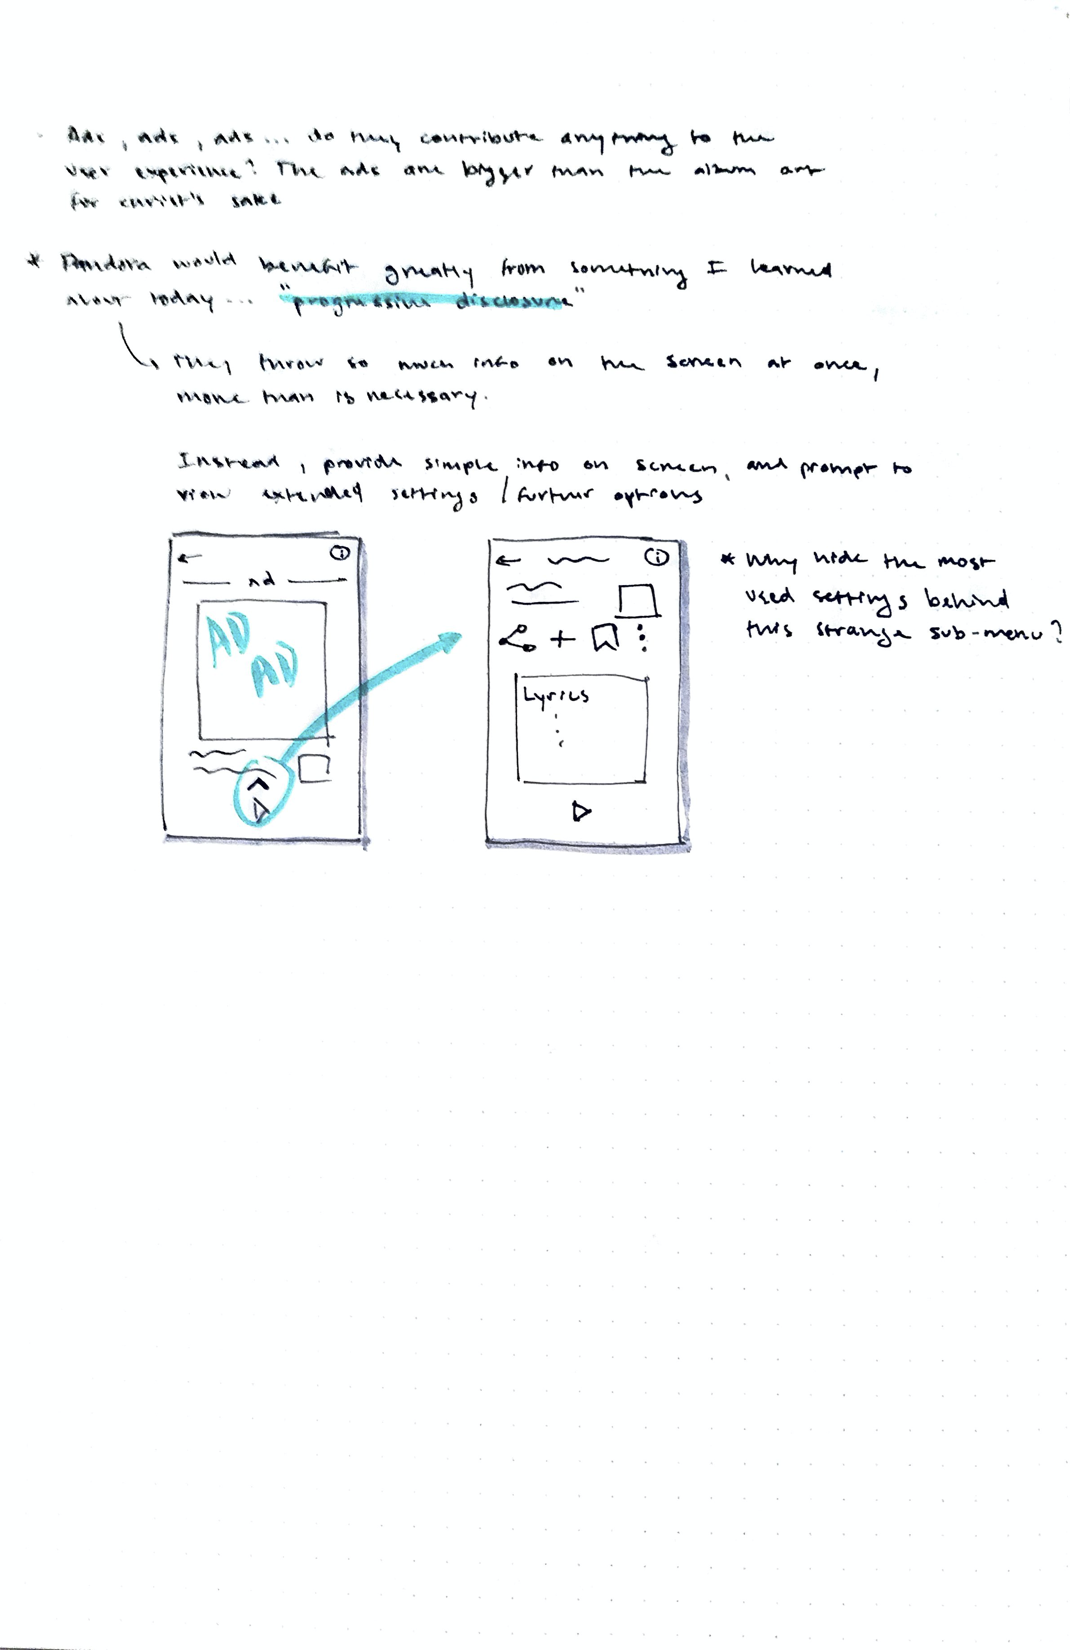 - Ads, ads, ads... do they contribute anything to the
user experience? The ads are bigger than the album art
for christ's sake
* Pandora would benefit greatly from something I learned
about today... "progressive disclosure"
They throw so much info on the screen at once,
more than is necessary.
Instead, provide simple info on screen, and prompt to
view extended settings / further options
Ad
AD
AD
Lyrics
* Why hide the most
used settings behind
this strange sub-menu?